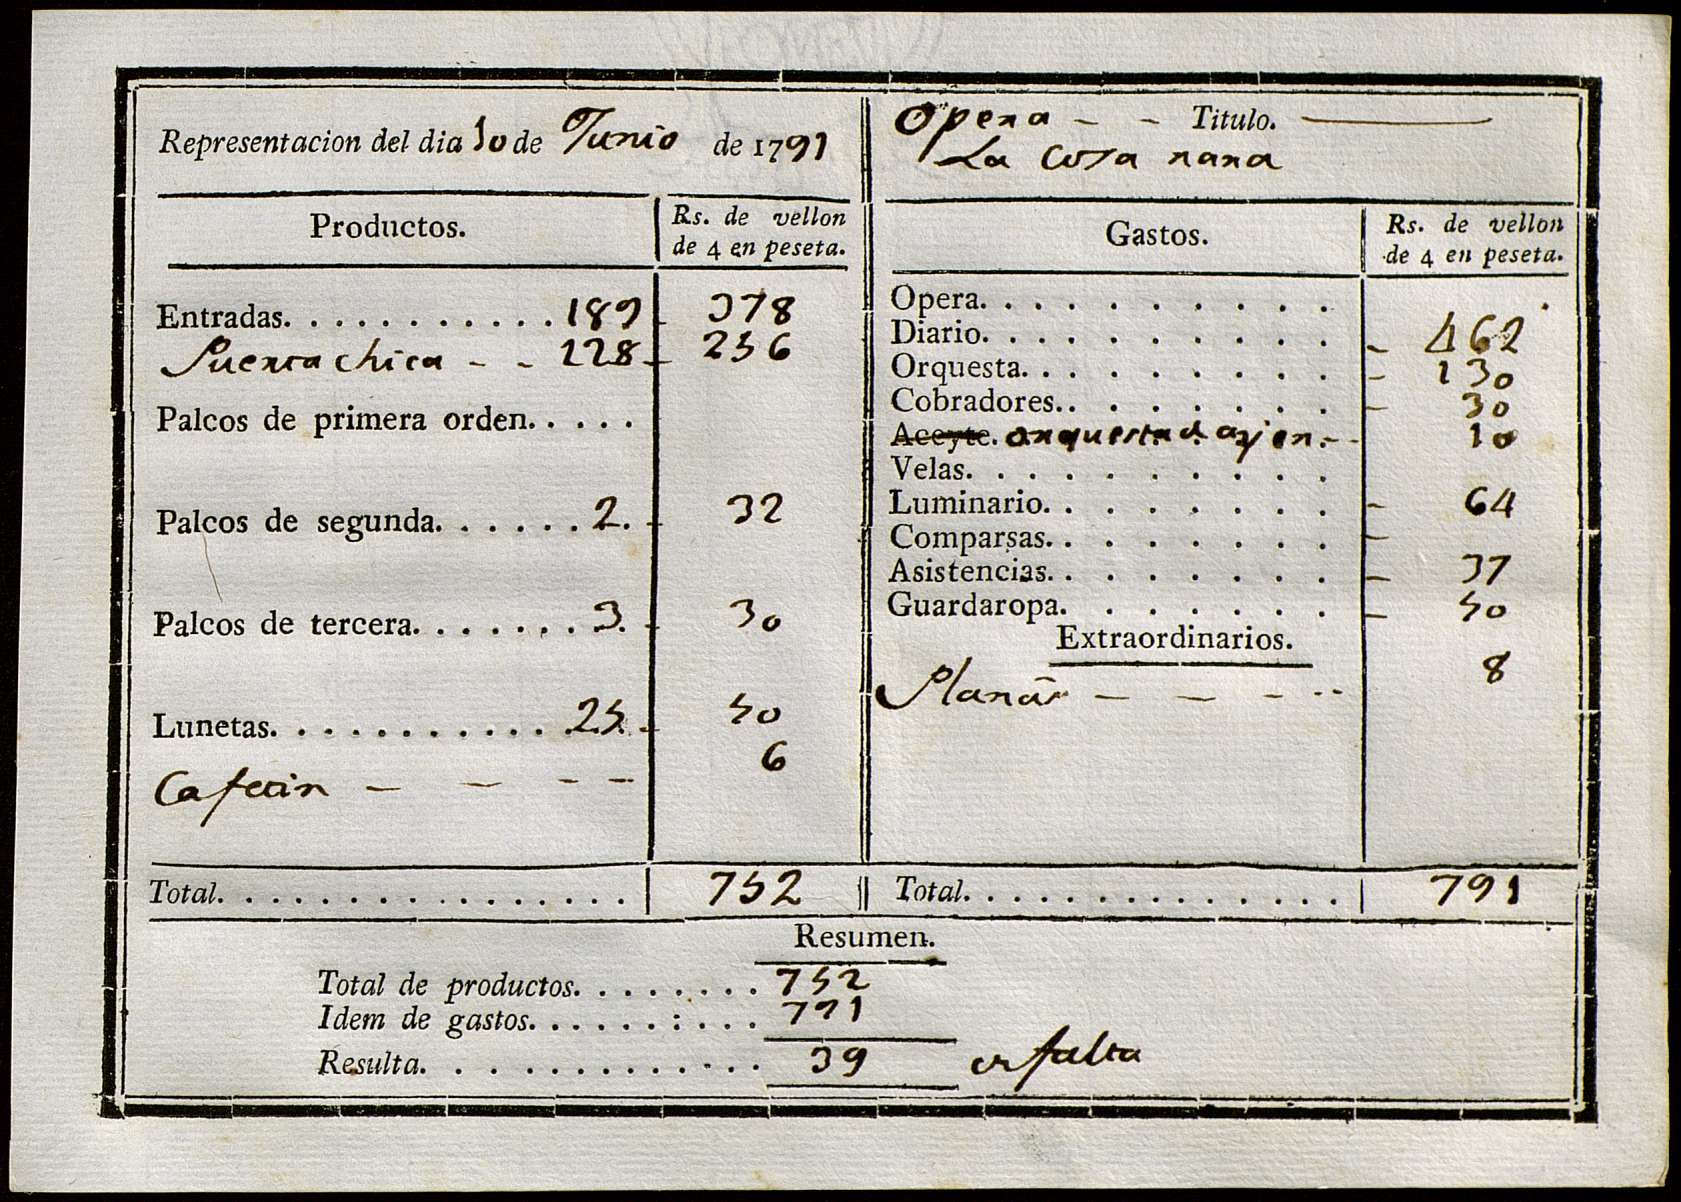 Representacion del dia 10 de Junio de 1791
Opera - - Titulo.
La Cosa rara
Productos.
Rs. de vellon
de 4 en peseta.
Gastos.
Rs. de vellon
de 4 en peseta.
Entradas. . . . . . . . . . . 189 - 378
Puerta chica - - 128 - 256
Palcos de primera orden. . . . .
Palcos de segunda. . . . . . 2. - 32
Palcos de tercera. . . . . . . 3. - 30
Lunetas. . . . . . . . . . . . 25. - 50
Cafetin - - - - 6
Total. . . . . . . . . . . . . . . . 752
Opera. . . . . . . . . . .
Diario. . . . . . . . . . . - 462
Orquesta. . . . . . . . . . - 130
Cobradores. . . . . . . . . - 30
Aceyte. orquesta 10
Velas. . . . . . . . . . .
Luminario. . . . . . . . . - 64
Comparsas. . . . . . . . . -
Asistencias. . . . . . . . . - 37
Guardaropa. . . . . . . . - 50
Extraordinarios.
- - - - 8
Total. . . . . . . . . . . . . . . 791
Resumen.
Total de productos. . . . . . . . 752
Idem de gastos. . . . . . : . . . 791
Resulta. . . . . . . . . . . . . . 39 es falta